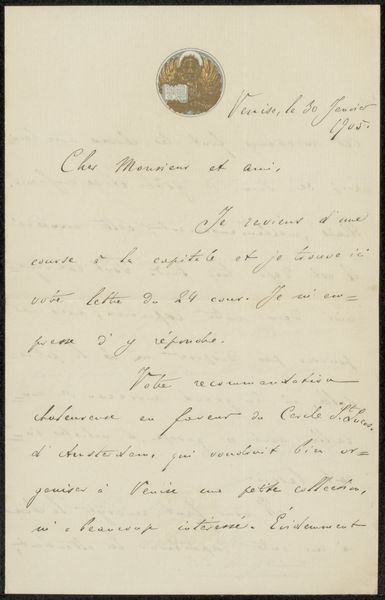 Venise, le 30 Janvier
1905.
Cher Monsieur et ami,
Je reviens d'une
course à la capitale et je trouve ici
votre lettre du 24 cour. Je m'em=
presse d'y répondre.
Votre recommandation
chaleureuse en faveur du Cercle St. Lucas
d'Amsterdam, qui voudrait bien or=
ganiser à Venise une petite collection,
m'a beaucoup intéressé. Évidemment